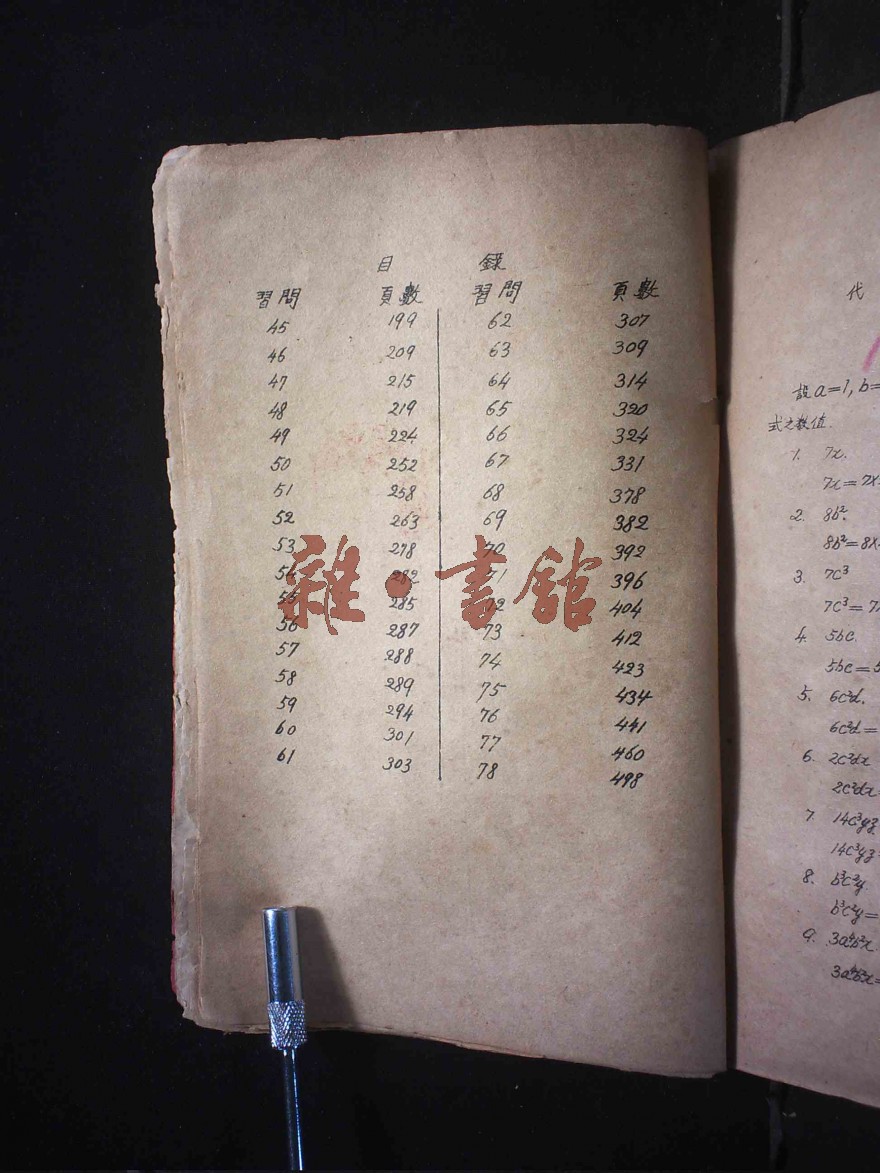 目 錄
習問 頁數 習問 頁數
45 199 62 307
46 209 63 309
47 215 64 314
48 219 65 320
49 224 66 324
50 252 67 331
51 258 68 378
52 263 69 382
53 278 70 392
54 282 71 396
55 285 72 404
56 287 73 412
57 288 74 423
58 289 75 434
59 294 76 441
60 301 77 460
61 303 78 498
雜·書館
代
設a=1, b=
式之数值.
1. 7x.
7x=7×
2. 8b².
8b²=8×
3. 7c³
7c³=7
4. 5bc.
5bc=5
5. 6c²d.
6c²d=
6. 2c²dx
2c²dx=
7. 14c³yz.
14c³yz
8. b³c²y
b³c²y=
9.